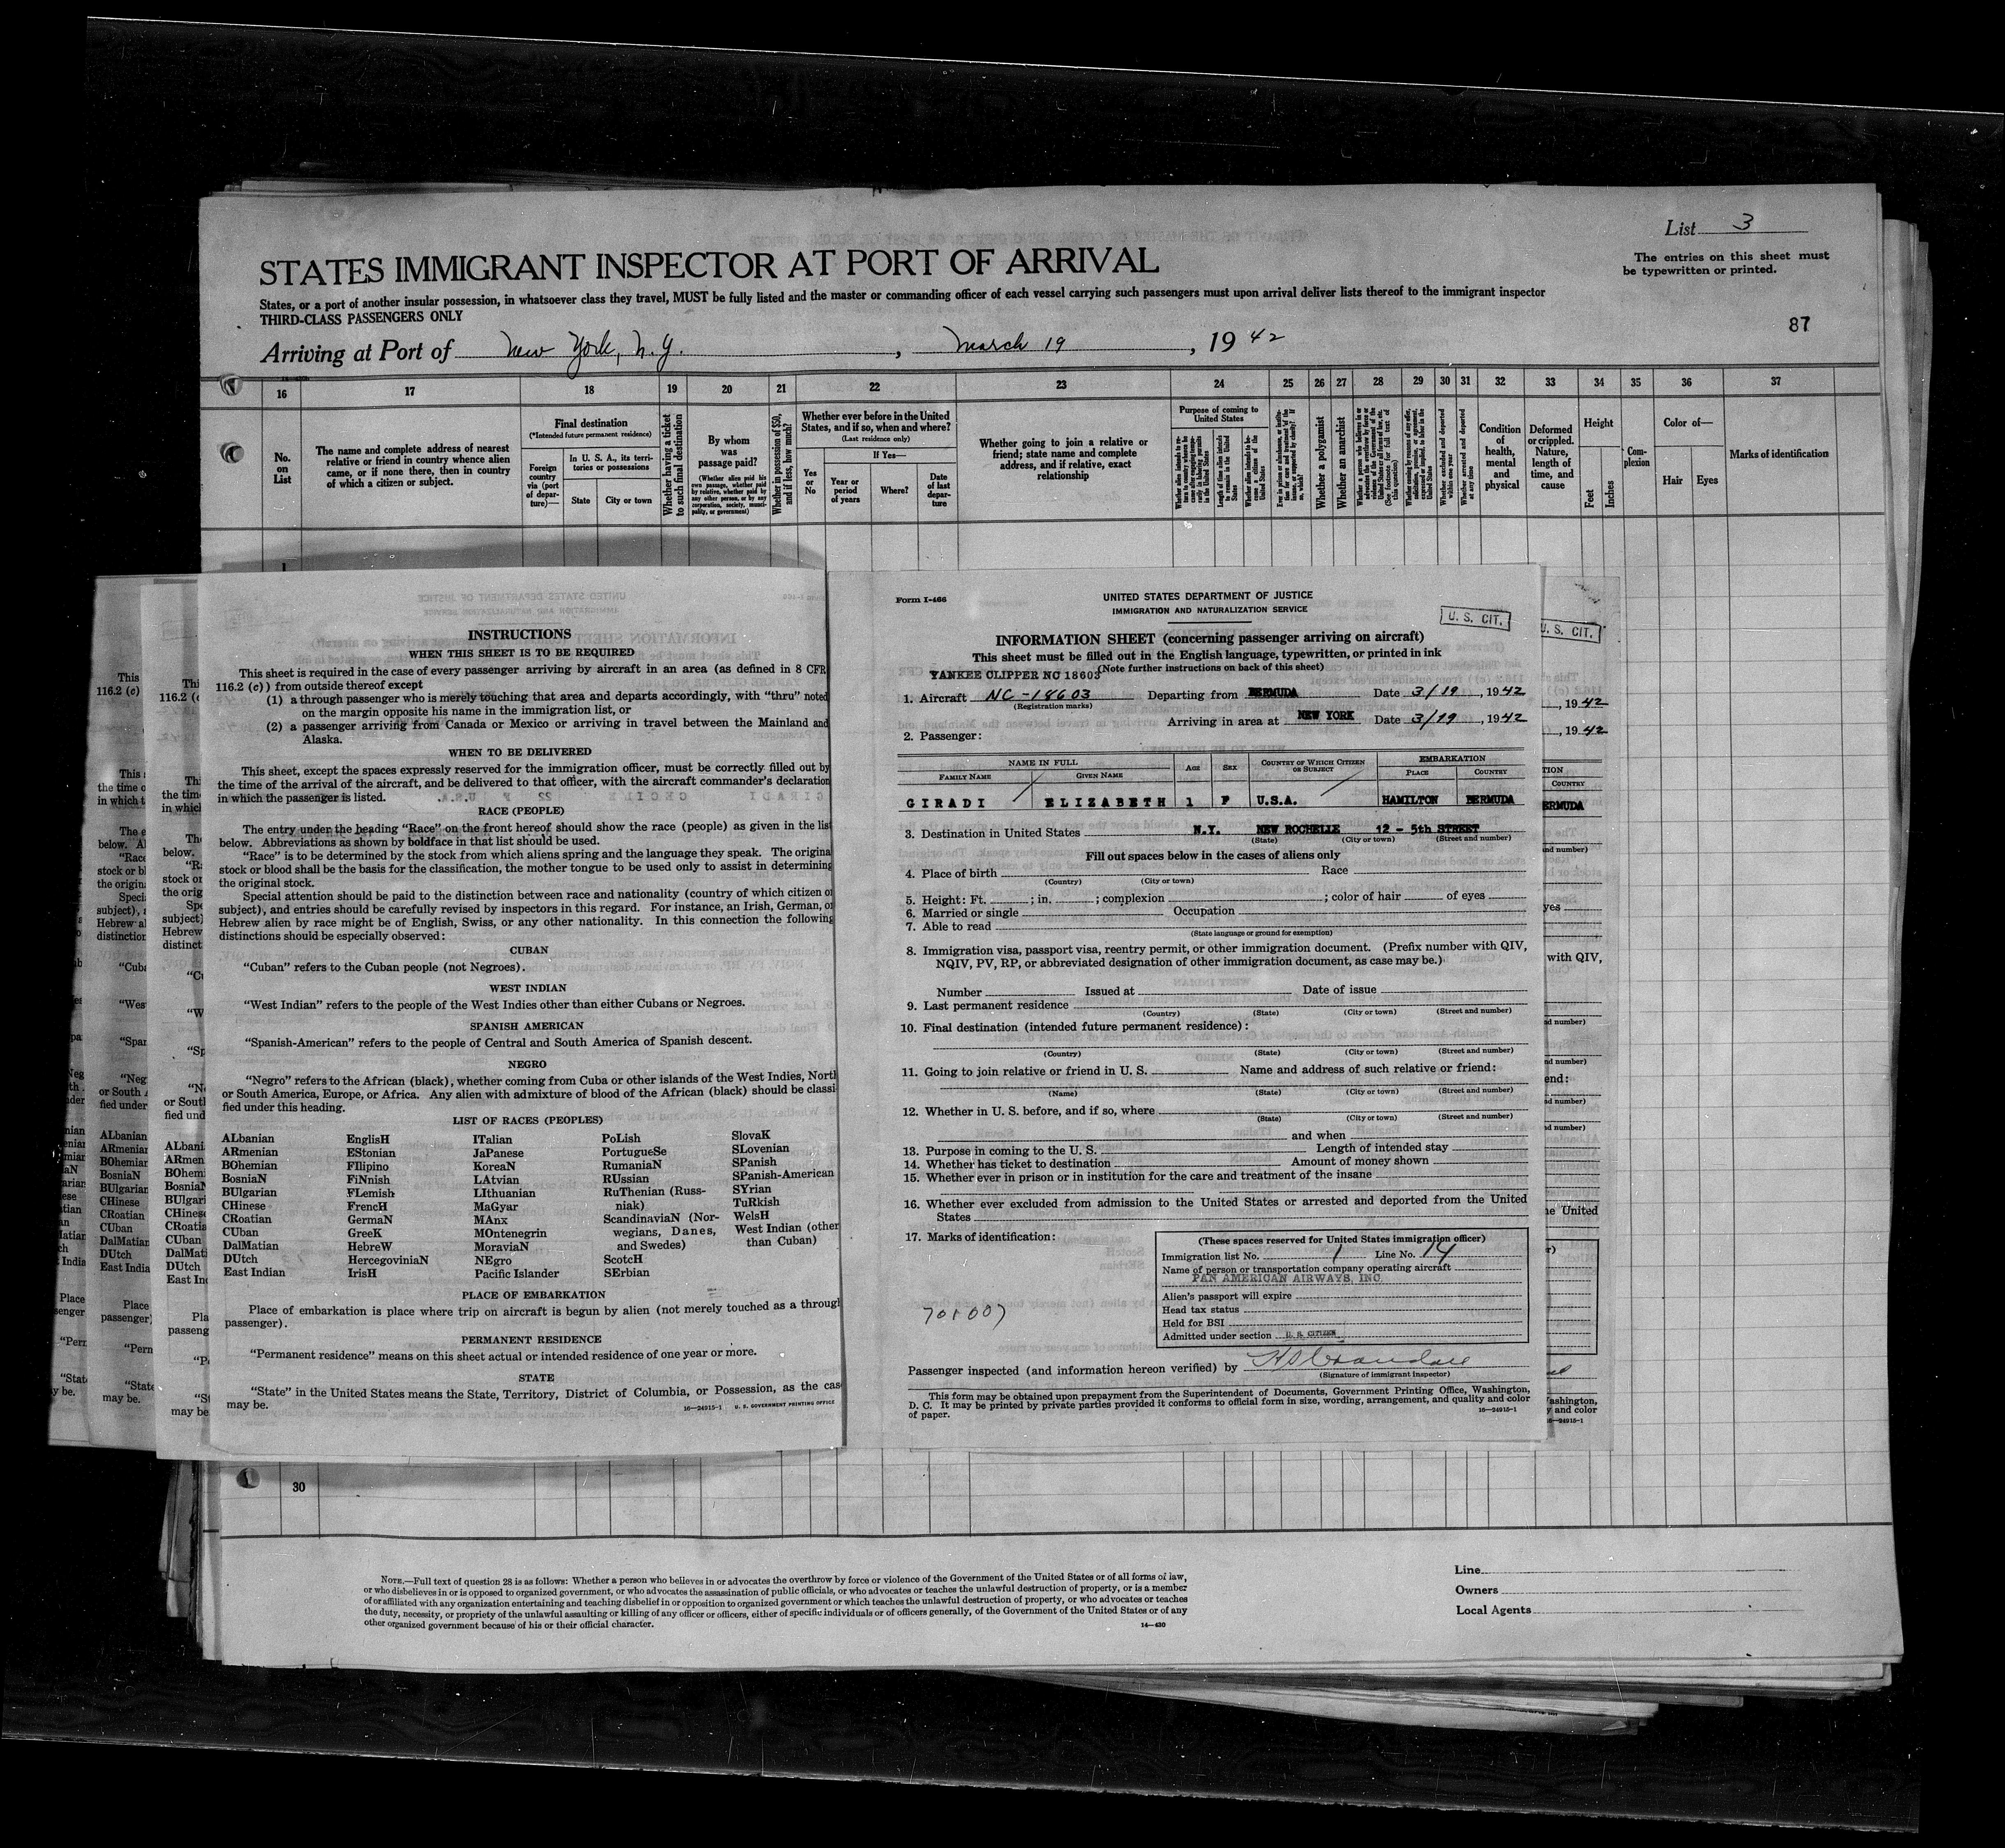 List 3
STATES IMMIGRANT INSPECTOR AT PORT OF ARRIVAL
The entries on this sheet must
be typewritten or printed.
States, or a port of another insular possession, in whatsoever class they travel, MUST be fully listed and the master or commanding officer of each vessel carrying such passengers must upon arrival deliver lists thereof to the immigrant inspector
THIRD-CLASS PASSENGERS ONLY
87
Arriving at Port of New York, N.Y. , March 19 , 1942
16 17 18 19 20 21 22 23 24 25 26 27 28 29 30 31 32 33 34 35 36 37
No. on List
The name and complete address of nearest
relative or friend in country whence alien
came, or if none there, then in country
of which a citizen or subject.
Final destination
(*Intended future permanent residence)
Foreign country via (port of departure)—
In U. S. A., its territories or possessions
State
City or town
Whether having a ticket to such final destination
By whom was passage paid?
(Whether alien paid his own passage, whether paid by relative, whether paid by any other person, or by any corporation, society, municipality, or government)
Whether in possession of $50, and if less, how much?
Whether ever before in the United
States, and if so, when and where?
(Last residence only)
Yes or No
If Yes—
Year or period of years
Where?
Date of last departure
Whether going to join a relative or
friend; state name and complete
address, and if relative, exact
relationship
Purpose of coming to
United States
Whether a polygamist
Whether an anarchist
Whether excluded and deported within one year
Whether arrested and deported at any time
Condition of health, mental and physical
Deformed or crippled. Nature, length of time, and cause
Height
Feet
Inches
Complexion
Color of—
Hair
Eyes
Marks of identification
INSTRUCTIONS
WHEN THIS SHEET IS TO BE REQUIRED
This sheet is required in the case of every passenger arriving by aircraft in an area (as defined in 8 CFR
116.2 (c)) from outside thereof except
(1) a through passenger who is merely touching that area and departs accordingly, with “thru” noted
on the margin opposite his name in the immigration list, or
(2) a passenger arriving from Canada or Mexico or arriving in travel between the Mainland and
Alaska.
WHEN TO BE DELIVERED
This sheet, except the spaces expressly reserved for the immigration officer, must be correctly filled out by
the time of the arrival of the aircraft, and be delivered to that officer, with the aircraft commander's declaration
in which the passenger is listed.
RACE (PEOPLE)
The entry under the heading “Race” on the front hereof should show the race (people) as given in the list
below. Abbreviations as shown by boldface in that list should be used.
“Race” is to be determined by the stock from which aliens spring and the language they speak. The origina
stock or blood shall be the basis for the classification, the mother tongue to be used only to assist in determining
the original stock.
Special attention should be paid to the distinction between race and nationality (country of which citizen or
subject), and entries should be carefully revised by inspectors in this regard. For instance, an Irish, German, or
Hebrew alien by race might be of English, Swiss, or any other nationality. In this connection the following
distinctions should be especially observed:
CUBAN
“Cuban” refers to the Cuban people (not Negroes).
WEST INDIAN
“West Indian” refers to the people of the West Indies other than either Cubans or Negroes.
SPANISH AMERICAN
“Spanish-American” refers to the people of Central and South America of Spanish descent.
NEGRO
“Negro” refers to the African (black), whether coming from Cuba or other islands of the West Indies, North
or South America, Europe, or Africa. Any alien with admixture of blood of the African (black) should be classi
fied under this heading.
LIST OF RACES (PEOPLES)
ALbanian
ARmenian
BOhemian
BosniaN
BUlgarian
CHinese
CRoatian
CUban
DalMatian
DUtch
East Indian
EnglisH
EStonian
FIlipino
FiNnish
FLemish
FrencH
GermaN
GreeK
HebreW
HercegoviniaN
IrisH
ITalian
JaPanese
KoreaN
LAtvian
LIthuanian
MaGyar
MAnx
MOntenegrin
MoraviaN
NEgro
Pacific Islander
PoLish
PortugueSe
RumaniaN
RUssian
RuThenian (Russ-
niak)
ScandinaviaN (Nor-
wegians, Danes,
and Swedes)
ScotcH
SErbian
SlovaK
SLovenian
SPanish
SPanish-American
SYrian
TuRkish
WelsH
West Indian (other
than Cuban)
PLACE OF EMBARKATION
Place of embarkation is place where trip on aircraft is begun by alien (not merely touched as a throug
passenger).
PERMANENT RESIDENCE
“Permanent residence” means on this sheet actual or intended residence of one year or more.
STATE
“State” in the United States means the State, Territory, District of Columbia, or Possession, as the cas
may be.
16—24915-1 U. S. GOVERNMENT PRINTING OFFICE
Form I-466
UNITED STATES DEPARTMENT OF JUSTICE
IMMIGRATION AND NATURALIZATION SERVICE
U. S. CIT.
U. S. CIT.
INFORMATION SHEET (concerning passenger arriving on aircraft)
This sheet must be filled out in the English language, typewritten, or printed in ink
(Note further instructions on back of this sheet)
YANKEE CLIPPER NC 18603
1. Aircraft NC-18603 Departing from BERMUDA Date 3/19, 1942
(Registration marks)
Arriving in area at NEW YORK Date 3/19, 1942
2. Passenger:
NAME IN FULL
FAMILY NAME GIVEN NAME
AGE SEX COUNTRY OF WHICH CITIZEN OR SUBJECT
EMBARKATION
PLACE COUNTRY
GIRADI ELIZABETH 1 F U.S.A. HAMILTON BERMUDA
3. Destination in United States N.Y. NEW ROCHELLE 12 - 5th STREET
(State) (City or town) (Street and number)
Fill out spaces below in the cases of aliens only
4. Place of birth Race
(Country) (City or town)
5. Height: Ft. ; in. ; complexion ; color of hair of eyes
6. Married or single Occupation
7. Able to read
(State language or ground for exemption)
8. Immigration visa, passport visa, reentry permit, or other immigration document. (Prefix number with QIV,
NQIV, PV, RP, or abbreviated designation of other immigration document, as case may be.)
Number Issued at Date of issue
9. Last permanent residence
(Country) (State) (City or town) (Street and number)
10. Final destination (intended future permanent residence):
(Country) (State) (City or town) (Street and number)
11. Going to join relative or friend in U. S. Name and address of such relative or friend:
(Name) (State) (City or town) (Street and number)
12. Whether in U. S. before, and if so, where
(State) (City or town) (Street and number)
and when
13. Purpose in coming to the U. S. Length of intended stay
14. Whether has ticket to destination Amount of money shown
15. Whether ever in prison or in institution for the care and treatment of the insane
16. Whether ever excluded from admission to the United States or arrested and deported from the United
States
17. Marks of identification:
(These spaces reserved for United States immigration officer)
Immigration list No. 1 Line No. 14
Name of person or transportation company operating aircraft
PAN AMERICAN AIRWAYS, INC.
Alien's passport will expire
Head tax status
Held for BSI
Admitted under section U. S. CITIZEN
Passenger inspected (and information hereon verified) by
(Signature of immigrant inspector)
This form may be obtained upon prepayment from the Superintendent of Documents, Government Printing Office, Washington,
D. C. It may be printed by private parties provided it conforms to official form in size, wording, arrangement, and quality and color
of paper.
16—24915-1
30
NOTE.—Full text of question 28 is as follows: Whether a person who believes in or advocates the overthrow by force or violence of the Government of the United States or of all forms of law,
or who disbelieves in or is opposed to organized government, or who advocates the assassination of public officials, or who advocates or teaches the unlawful destruction of property, or is a member
of or affiliated with any organization entertaining and teaching disbelief in or opposition to organized government or which teaches the unlawful destruction of property, or who advocates or teaches
the duty, necessity, or propriety of the unlawful assaulting or killing of any officer or officers, either of specific individuals or of officers generally, of the Government of the United States or of any
other organized government because of his or their official character.
14—430
Line
Owners
Local Agents